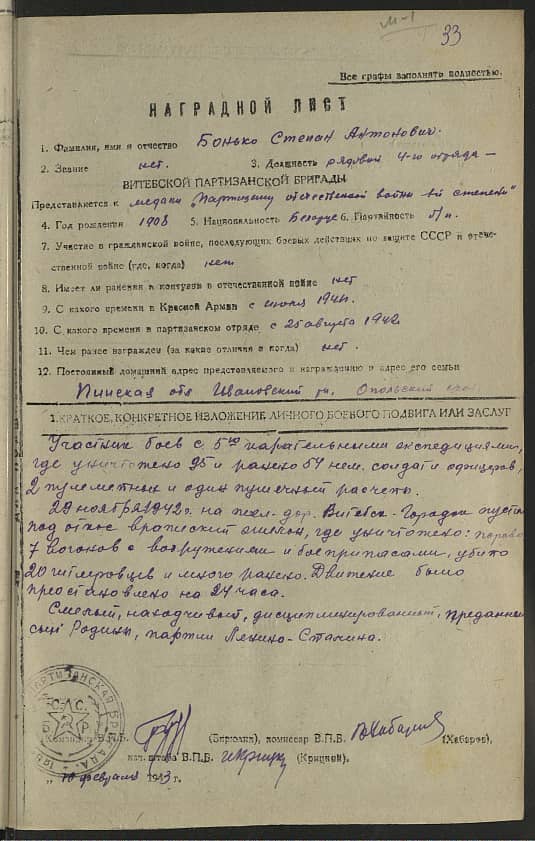 м-1
33
Все графы заполнять полностью.
НАГРАДНОЙ ЛИСТ
1. Фамилия, имя и отчество Бонько Степан Антонович.
2. Звание нет. 3. Должность рядовой 4-го отряда —
ВИТЕБСКОЙ ПАРТИЗАНСКОЙ БРИГАДЫ
Представляется к медали "Партизану отечественной войны II-й степени"
4. Год рождения 1908 5. Национальность Белорус 6. Партийность б/п.
7. Участие в гражданской войне, последующих боевых действиях по защите СССР и отече-
ственной войне (где, когда) нет
8. Имеет ли ранения и контузии в отечественной войне нет
9. С какого времени в Красной Армии с июля 1941.
10. С какого времени в партизанском отряде с 25 августа 1942
11. Чем ранее награжден (за какие отличия и когда) нет.
12. Постоянный домашний адрес представляемого к награждению и адрес его семьи
Пинская обл Ивановский рн. Опольский
1. КРАТКОЕ, КОНКРЕТНОЕ ИЗЛОЖЕНИЕ ЛИЧНОГО БОЕВОГО ПОДВИГА ИЛИ ЗАСЛУГ
Участник боев с 5ю карательными экспедициями,
где уничтожено 95 и ранено 54 нем. солдат и офицеров,
2 пулеметных и один пушечный расчеты.
29 ноября 1942г. на жел-дор. Витебск-Городок пустил
под откос вражеский эшелон, где уничтожено: паровоз
7 вагонов с вооружением и боеприпасами, убито
20 гитлеровцев и много ранено. Движение было
приостановлено на 24 часа.
Смелый, находчивый, дисциплинированный, преданный
сын Родины, партии Ленина-Сталина.
ПАРТИЗАНСКАЯ БРИГАДА
С.С.
Р
Командир В.П.Б. (Бирюлин), комиссар В.П.Б. Хабаров (Хабаров),
нач. штаба В.П.Б. (Крицкий).
„10 февраля 1943 г.